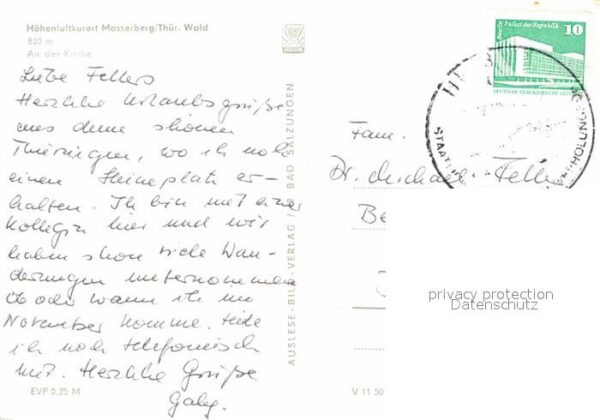 Höhenluftkurort Masserberg/Thür. Wald
820 m
An der Kirche
Liebe Fellers
Herzliche Urlaubsgrüße
aus dem schönen
Thüringen, wo ich noch
einen Heimplatz er-
halten. Ich bin mit einer
Kollegin hier und wir
haben schon viele Wan-
derungen unternommen
Ob oder wann ich im
November komme, teile
ich noch telefonisch
mit. Herzliche Grüße
Gaby.
EVP 0,25 M
AUSLESE-BILD-VERLAG / BAD SALZUNGEN
V 11 50
Berlin Palast der Republik
10
DEUTSCHE DEMOKRATISCHE REPUBLIK
STAATL
ERHOLUNG
Fam.
Dr. Michael Feller
Be
privacy protection
Datenschutz